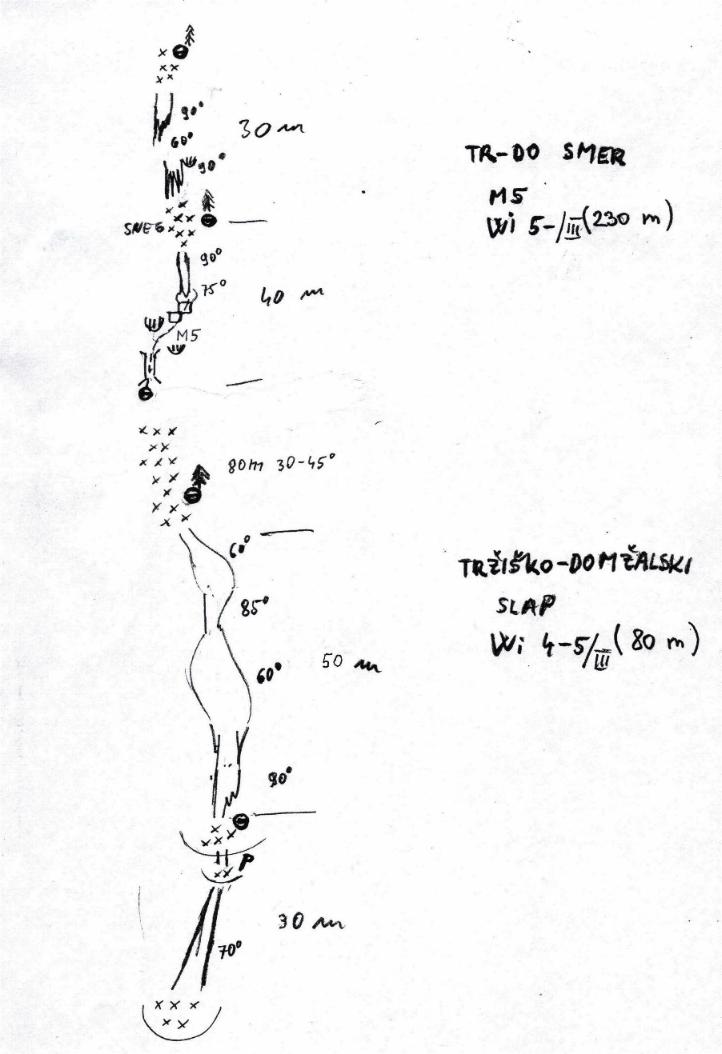 90°
60°
30 m
90°
TR-DO SMER
M5
Wi 5-/III (230 m)
SNEG
90°
75°
40 m
M5
80m 30-45°
60°
TRŽIŠKO-DOMŽALSKI
SLAP
Wi 4-5/III (80 m)
85°
50 m
60°
90°
P
30 m
70°